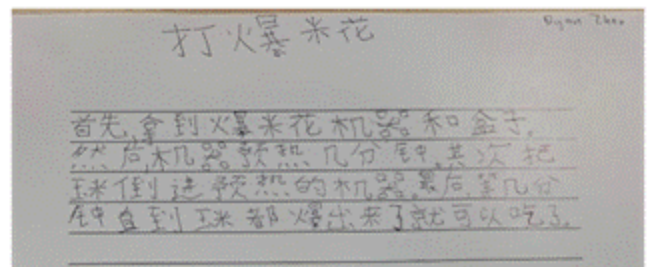 打爆米花
Ryan Zhao
首先,拿到爆米花机器和盒子。
然后,机器预热几分钟。其次把
玉米倒进预热的机器。最后等几分
钟直到玉米都爆出来了就可以吃了。